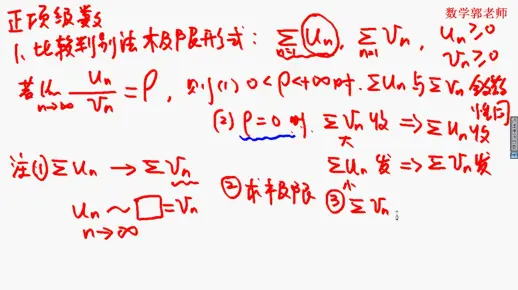 正项级数
数学郭老师
1. 比较判别法极限形式: ∑ Uₙ, ∑ Vₙ, Uₙ≥0
n=1 n=1 Vₙ≥0
若 lim Uₙ/Vₙ = ρ, 则 (1) 0<ρ<+∞时, ∑Uₙ 与 ∑Vₙ 敛散
n→∞ 性同
(2) ρ=0 时, ∑Vₙ 收 => ∑Uₙ 收
大
∑Uₙ 发 => ∑Vₙ 发
小
注① ∑Uₙ → ∑Vₙ
Uₙ ~ □ = Vₙ ② 求极限 ③ ∑Vₙ
n→∞